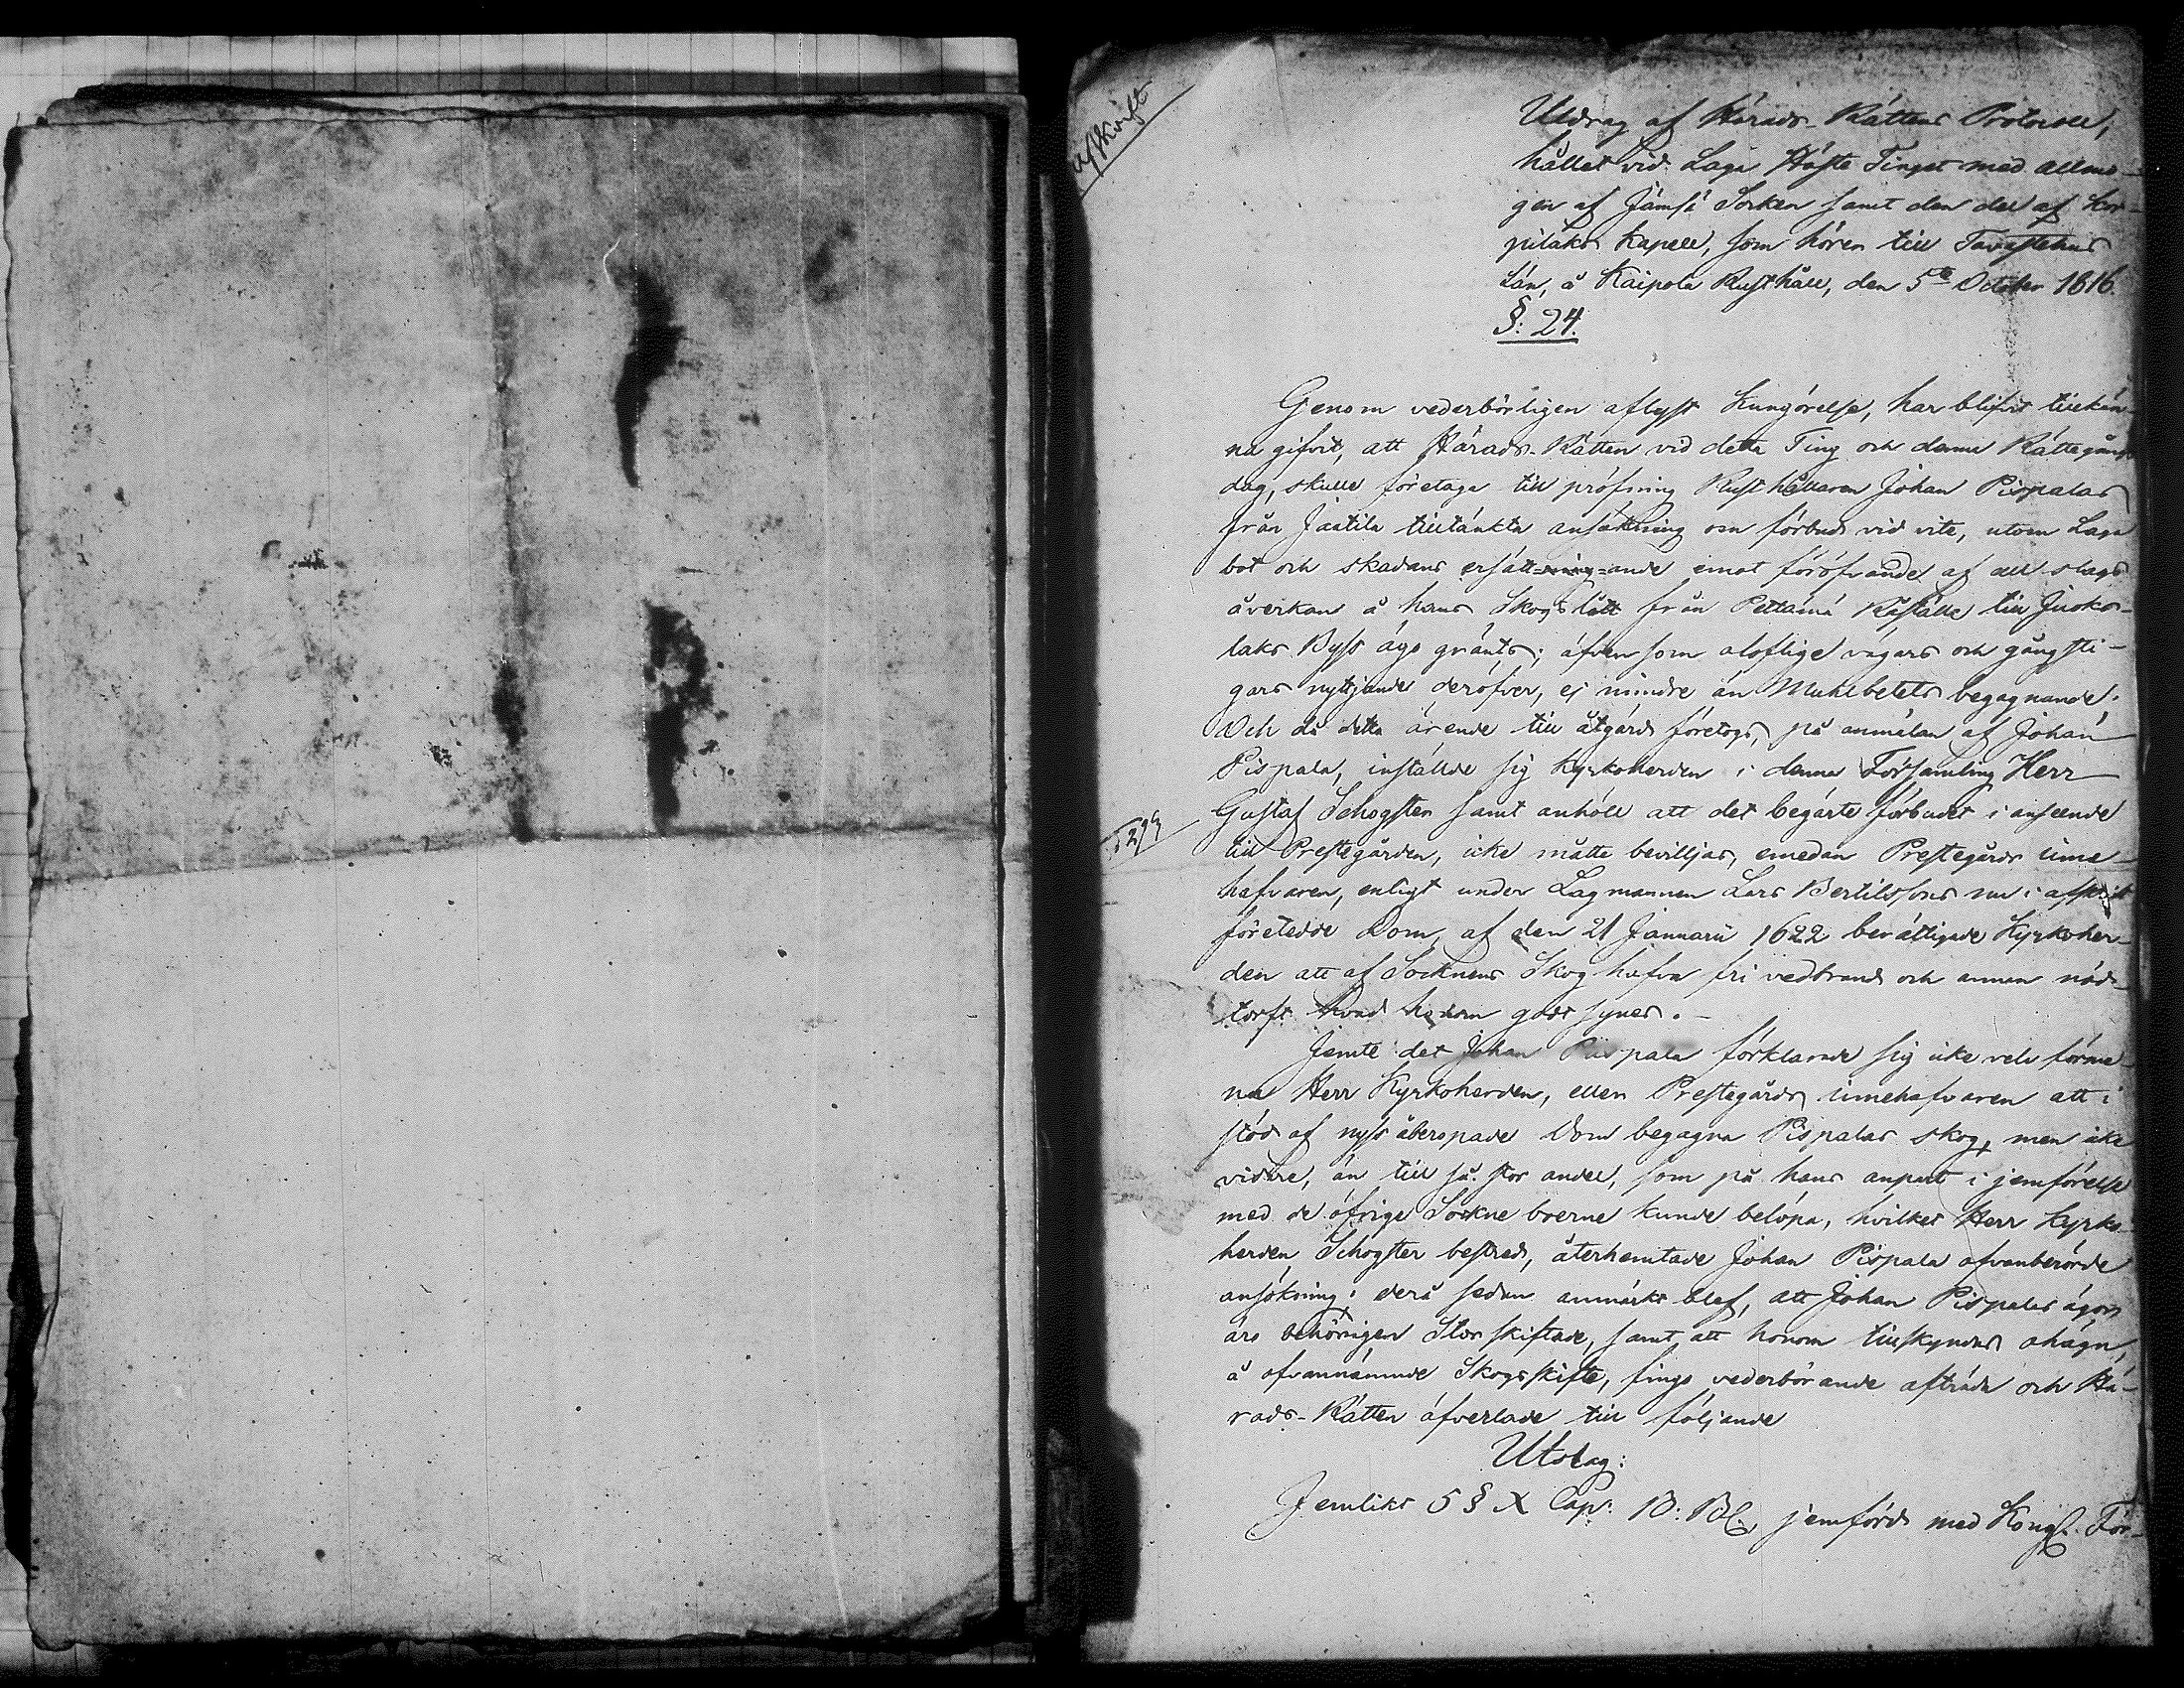 afskrift
Utdrag af Härads-Rättens Protocoll,
hållet vid Laga Höste Tinget med allmo-
gen af Jämsä Socken samt den del af Kor-
pilaks Kapell, som hörer till Tavastehus
Län, å Kaipola Rusthåll, den 5te October 1816.
§: 24.
Genom vederbörligen aflyst Kungörelse, har blifvit tillkän-
na gifvit, att Härads-Rätten vid detta Ting och denna Rättegångs
dag, skulle företaga till pröfning Rusthållaren Johan Pispalas
från Jaatila tilltänkta ansökning om förbud vid vite, utom Laga
bot och skadans ersättande emot föröfvande af all slags
åverkan å hans Skogslått från Pettämä Råställe till Juoks-
laks Byss ägo gränts; äfven som oloflige vägars och gångsti-
gars nyttjande deröfver, ej mindre än Muhlbetets begagnande.
Och då detta ärende till åtgärd företogs, på anmälan af Johan
Pispala, inställde sig Kyrkoherden i denna Församling Herr
Gustaf Schogster samt anhöll att det begärte förbudet i anseende
till Prestegården, icke måtte bevilljas, emedan Prestegårds inne-
hafvaren, enligt under Lagmannen Lars Bertilssons nu i afskrift
företedde Dom, af den 21 Januarii 1622 berättigade Kyrkoher-
den att af Socknens Skog hafva fri vedbrand och annan nöd-
torft hvad honom godt synes.
Jemte det Johan Pispala förklarade sig icke velv förme-
na Herr Kyrkoherden, eller Prestegårds innehafvaren att i
stöd af nyss åberopade Dom begagna Pispalas skog, men icke
vidare, än till så stor andel, som på hans anpart i jemförelse
med de öfrige Sockne boerne kunde belöpa, hvilket Herr Kyrko-
herden Schogster bestred, återhemtade Johan Pispala ofvanberörde
ansökning; derå sedan anmärkt blef, att Johan Pispalas ägor
äro behörigen Storskiftade, samt att honom tillskyndas ohägn,
å ofvannämnde Skogsskifte, fingo vederbörande afträda och Hä-
rads-Rätten öfverlade till följande
Utslag:
Jemlikt 5 § X Cap: B: B., jemförd med Kongl. För-